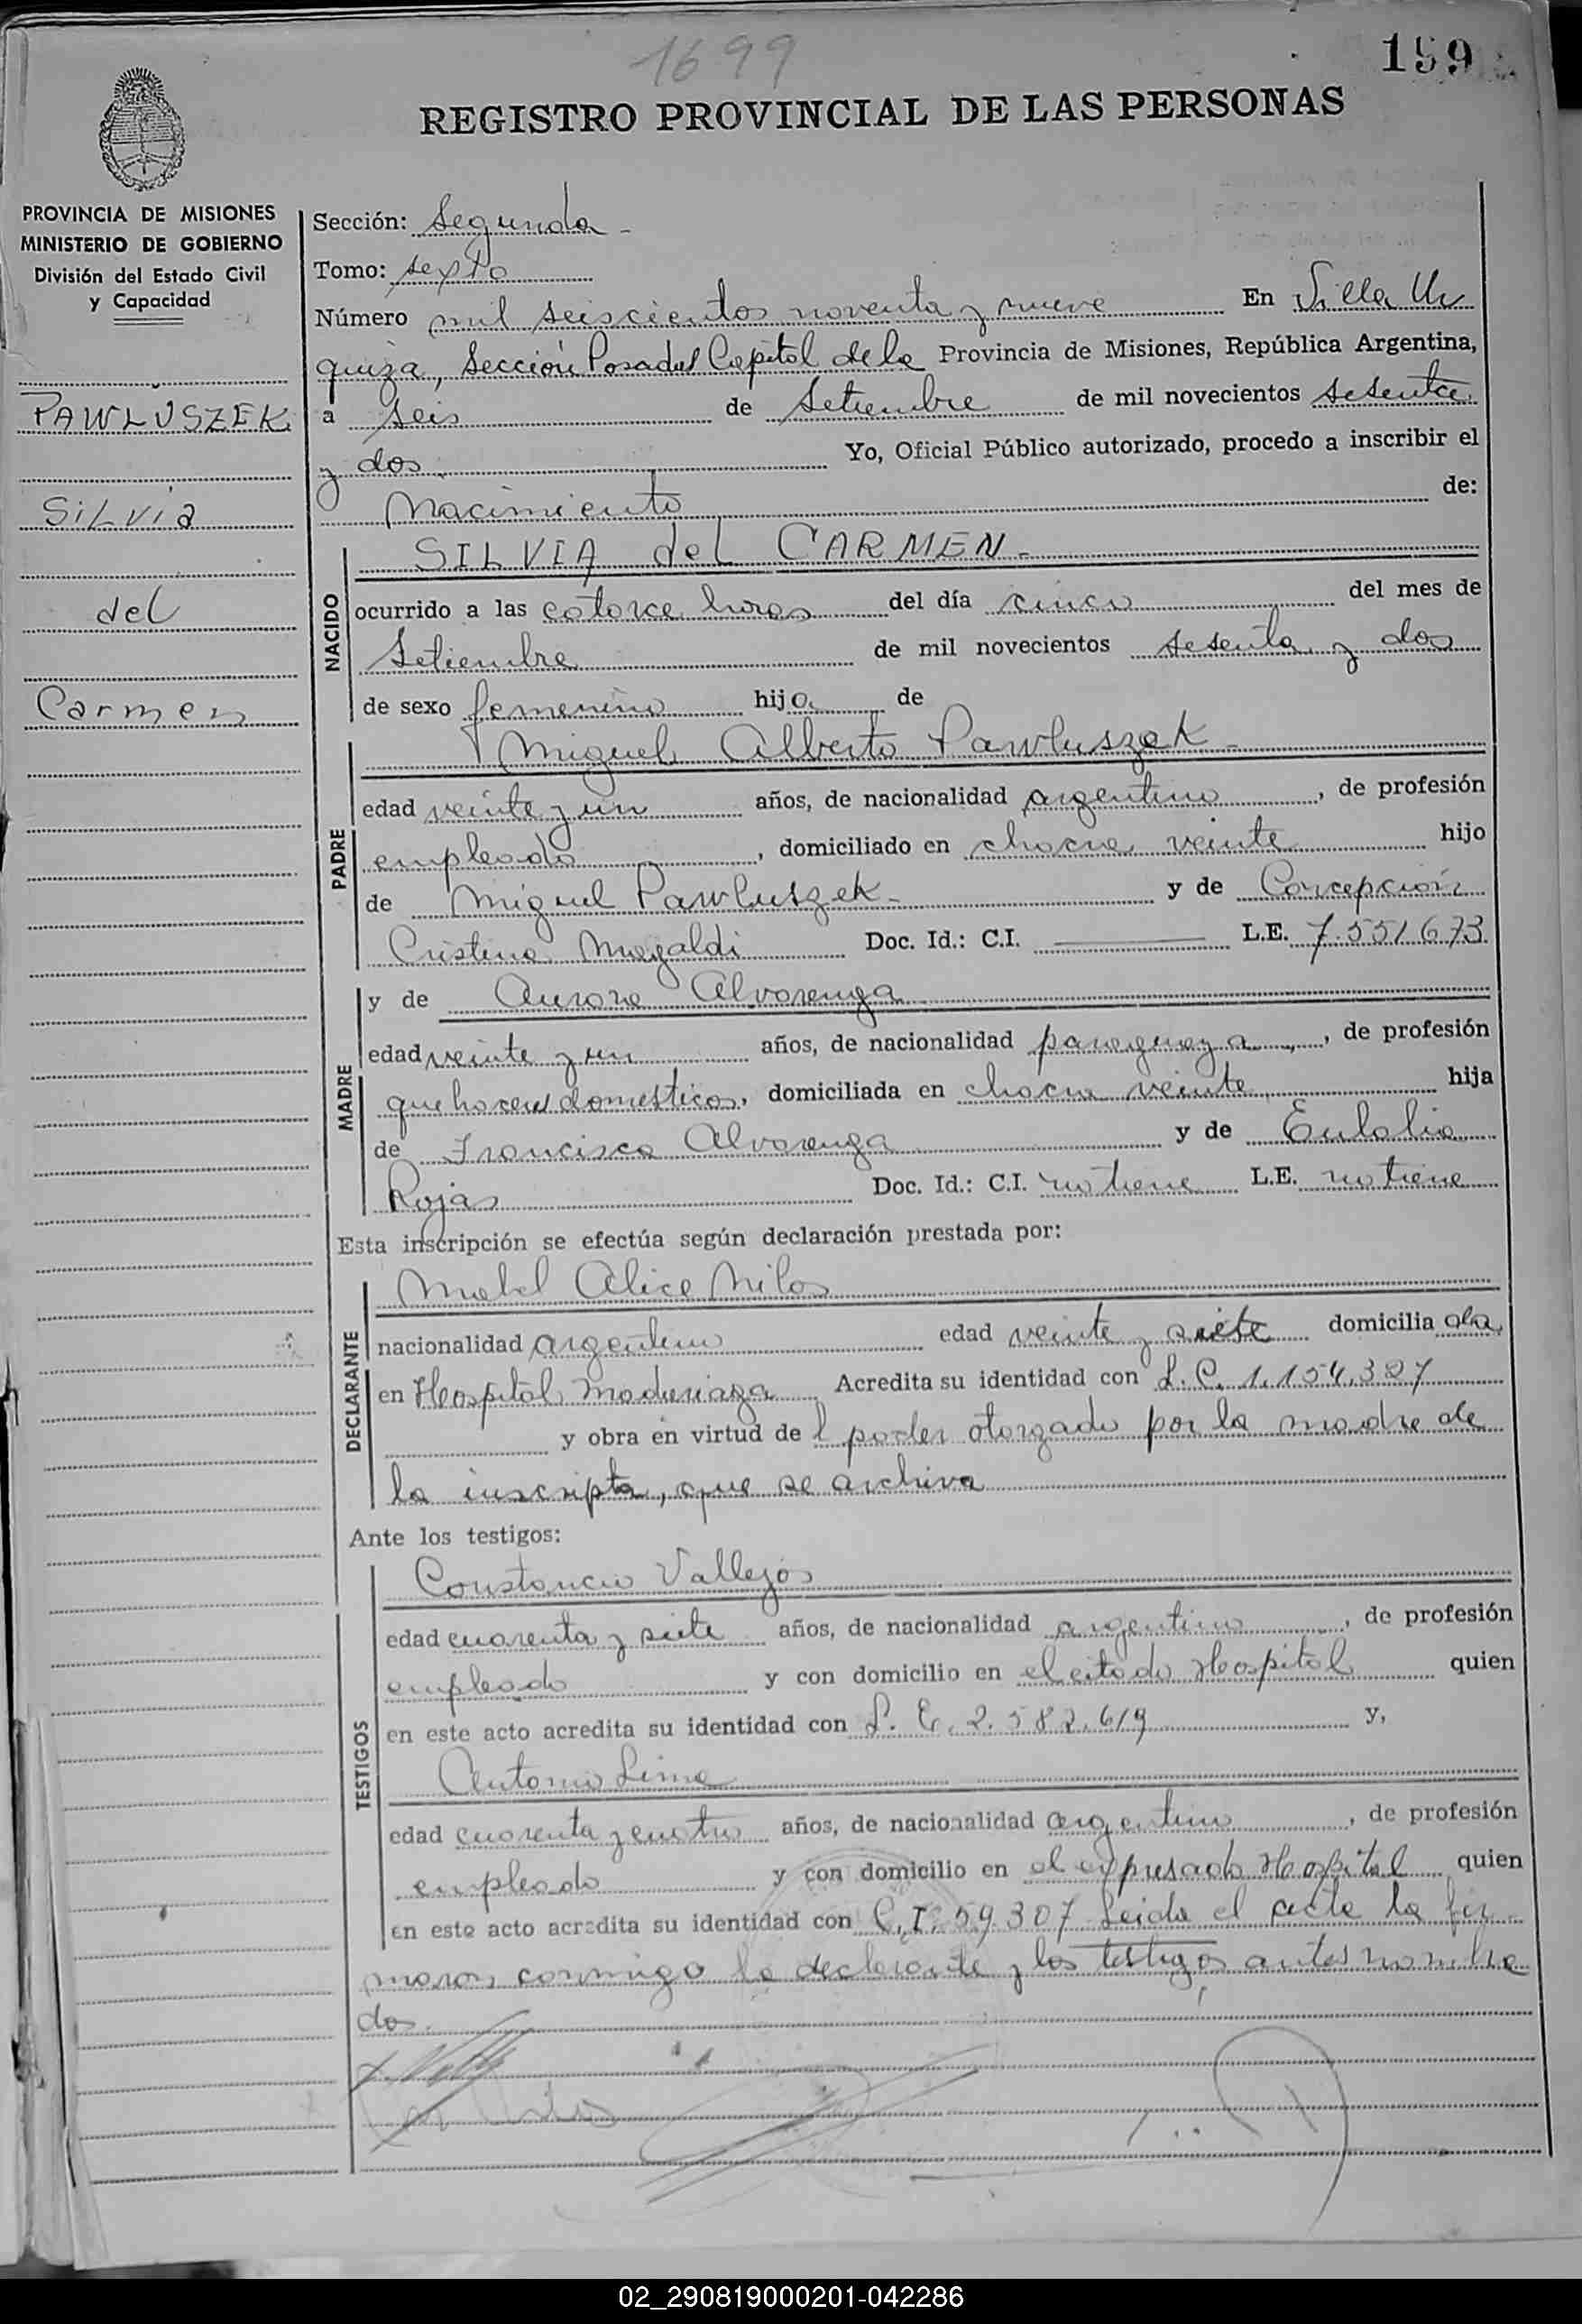 1699
199
REGISTRO PROVINCIAL DE LAS PERSONAS
PROVINCIA DE MISIONES
MINISTERIO DE GOBIERNO
División del Estado Civil
y Capacidad
PAWLUSZEK
Silvia
del
Carmen
Sección: Segunda
Tomo: sexto
Número mil seiscientos noventa y nueve En Villa Ur
quiza, Sección Posadas Capital de la Provincia de Misiones, República Argentina,
a seis de Setiembre de mil novecientos sesenta
y dos Yo, Oficial Público autorizado, procedo a inscribir el
Nacimiento de:
NACIDO
SILVIA del CARMEN
ocurrido a las catorce horas del día cinco del mes de
Setiembre de mil novecientos sesenta y dos
de sexo femenino hija de
PADRE
Miguel Alberto Pawluszek
edad veinte y un años, de nacionalidad argentino, de profesión
empleado, domiciliado en chacra veinte hijo
de Miguel Pawluszek y de Concepción
Cristina Magaldi Doc. Id.: C.I. L.E. 7.551.673
MADRE
y de Aurora Alvarenga
edad veinte y un años, de nacionalidad paraguaya, de profesión
quehaceres domesticos, domiciliada en chacra veinte hija
de Francisco Alvarenga y de Eulalia
Rojas Doc. Id.: C.I. no tiene L.E. no tiene
Esta inscripción se efectúa según declaración prestada por:
DECLARANTE
Mabel Alice Milos
nacionalidad argentina edad veinte y siete domicilia da
en Hospital Madariaga Acredita su identidad con L.C. 1.154.327
y obra en virtud del poder otorgado por la madre de
la inscripta, que se archiva
Ante los testigos:
TESTIGOS
Constancio Vallejos
edad cuarenta y siete años, de nacionalidad argentino, de profesión
empleado y con domicilio en el citado Hospital quien
en este acto acredita su identidad con L.E. 2.582.619 y,
Antonio Lima
edad cuarenta y cuatro años, de nacionalidad argentino, de profesión
empleado y con domicilio en el expresado Hospital quien
en este acto acredita su identidad con C.I. 59.307 Leida el acta la fir
maron conmigo la declarante y los testigos antes nombra
dos.
02_290819000201-042286